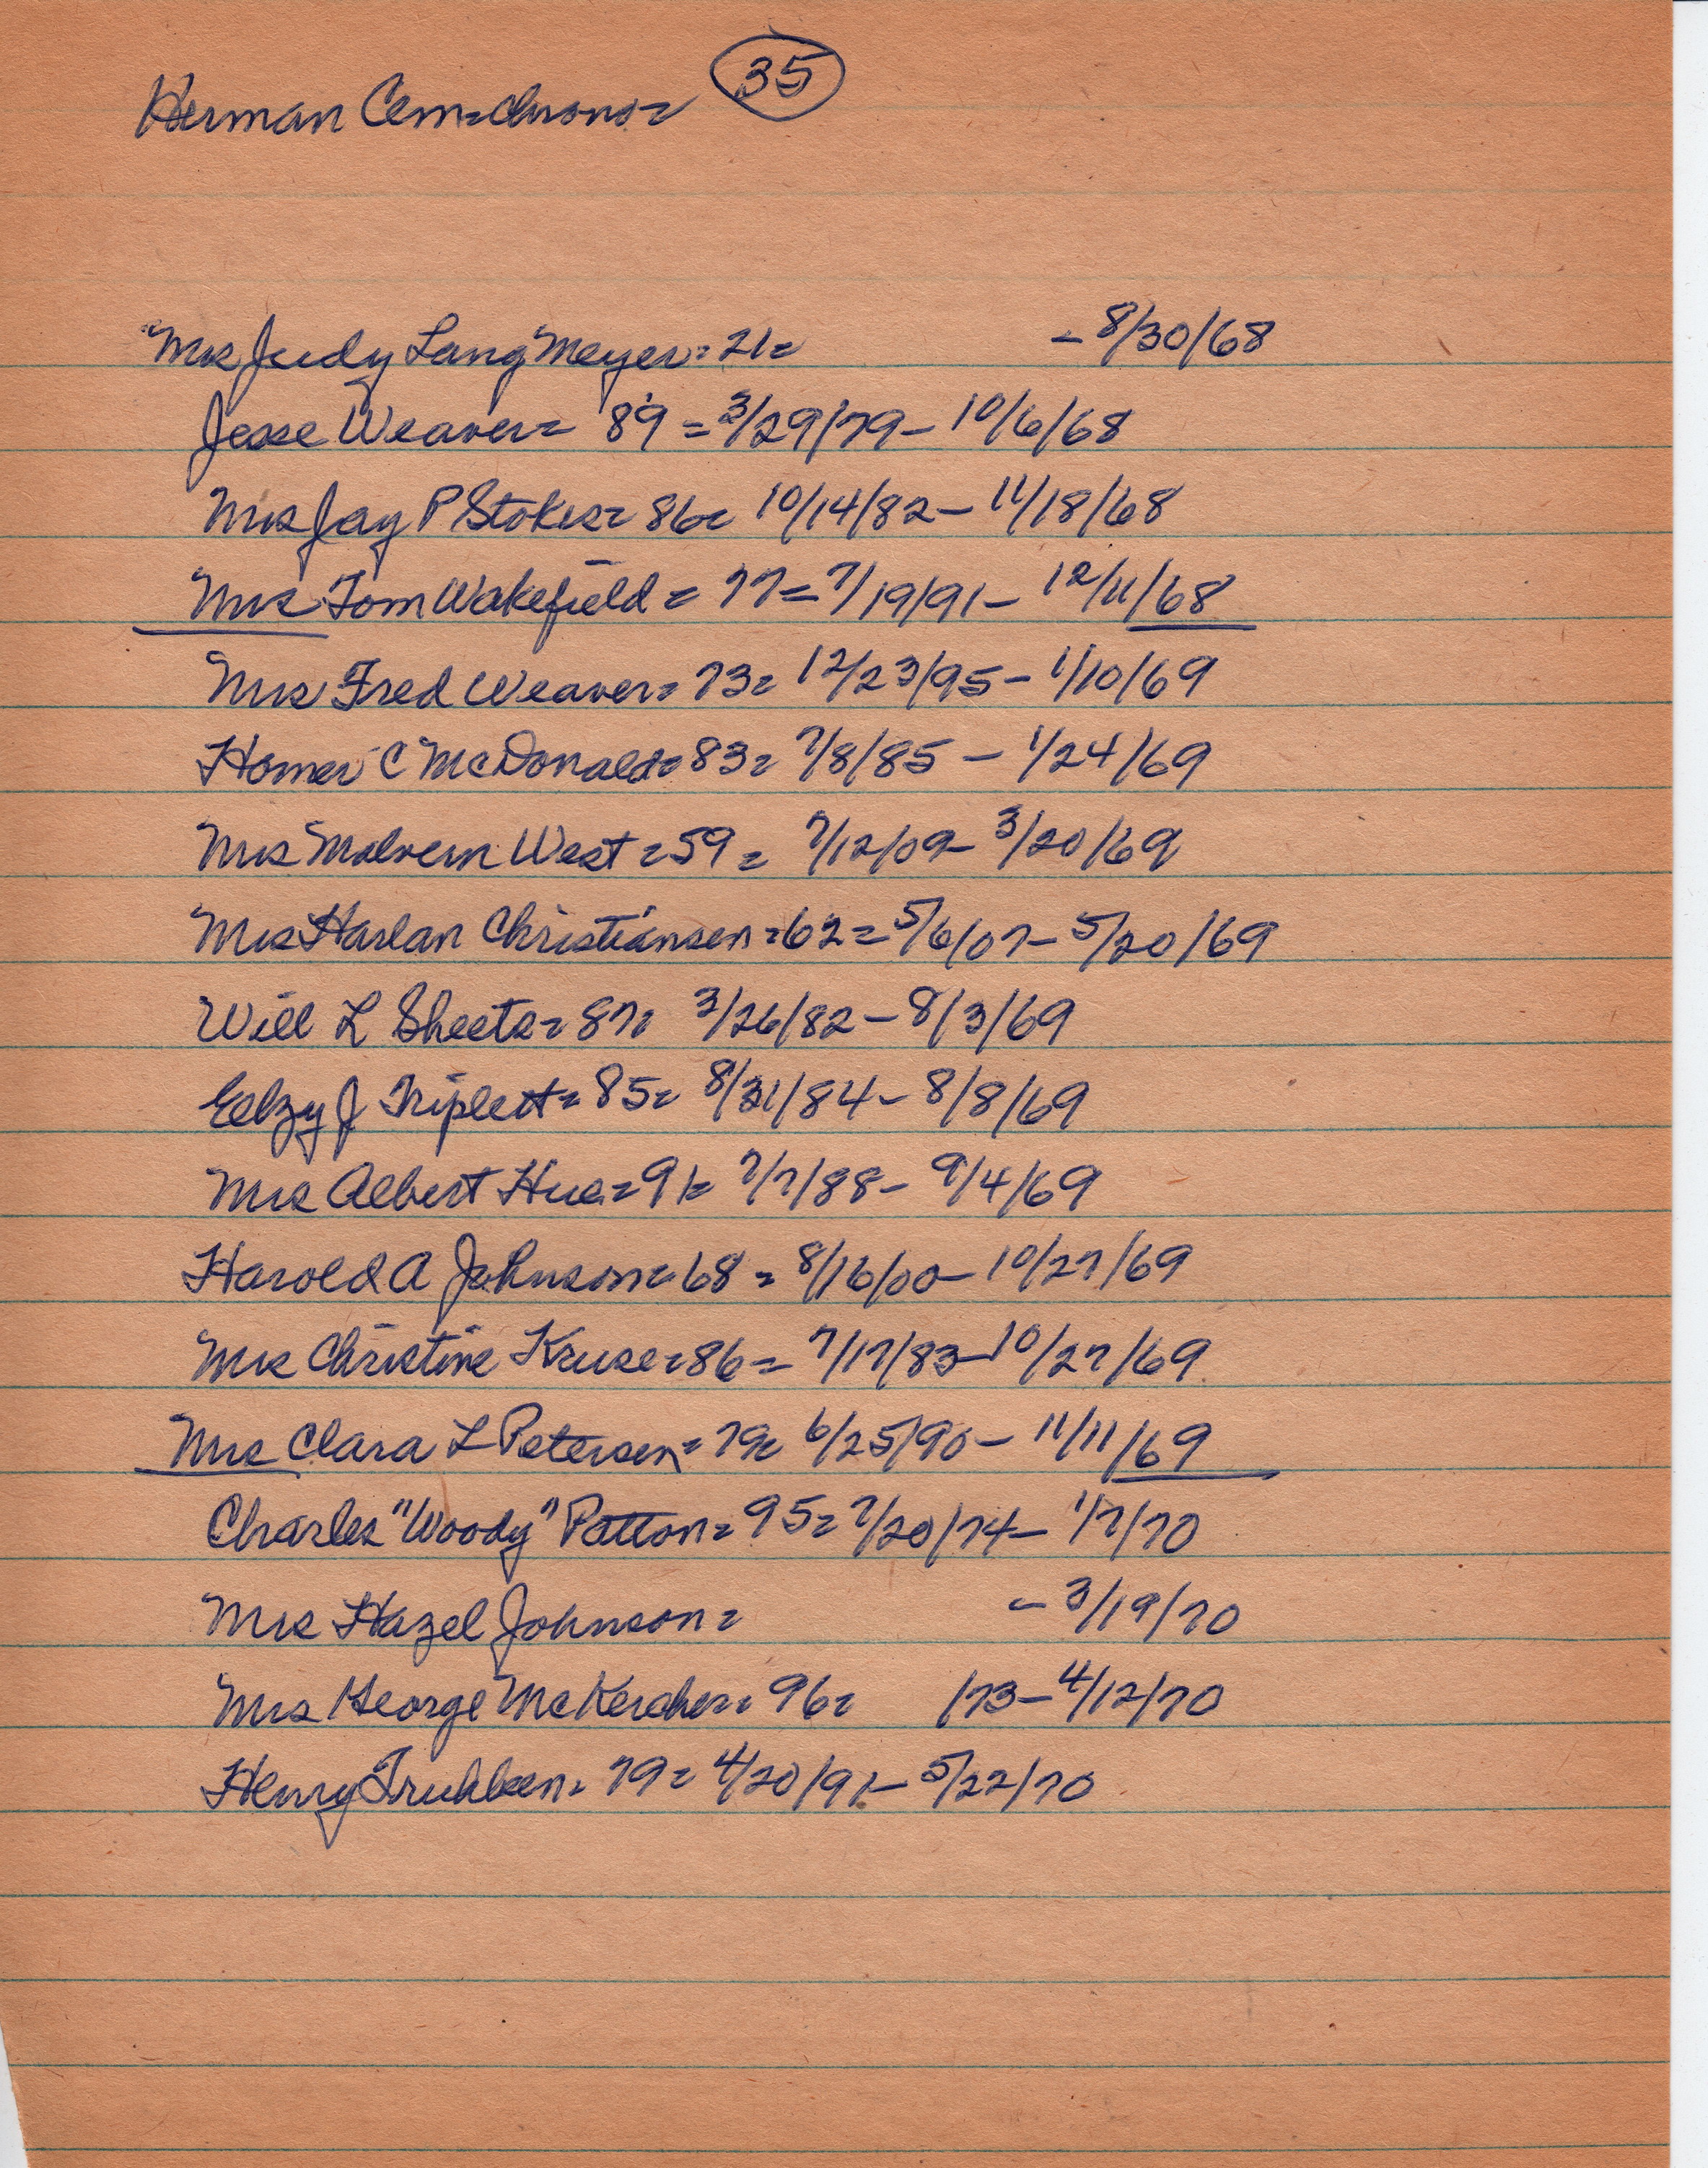 35
Herman Cem=chrono=
Mrs Judy Lang Meyer= 21= - 8/30/68
Jesse Weaver= 89 = 3/29/79- 10/6/68
Mrs Jay P Stokes= 86= 10/14/82- 11/18/68
Mrs Tom Wakefield = 77= 7/19/91- 12/11/68
Mrs Fred Weaver= 73= 12/23/95- 1/10/69
Homer C McDonald= 83= 7/8/85 - 1/24/69
Mrs Malvern West = 59 = 7/12/09- 3/20/69
Mrs Harlan Christiansen =62= 5/6/07- 5/20/69
Will L Sheets= 87= 3/26/82- 8/3/69
Elzy J Triplett= 85= 8/31/84- 8/8/69
Mrs Albert Hue=91= 7/7/88- 9/4/69
Harold A Johnson= 68 = 8/16/00- 10/27/69
Mrs Christine Kruse=86= 7/17/83- 10/27/69
Mrs Clara L Petersen= 79= 6/25/90- 11/11/69
Charles "Woody" Patton= 95= 7/20/74- 1/7/70
Mrs Hazel Johnson= - 3/19/70
Mrs George McKercher= 96= /73- 4/12/70
Henry Truhlsen= 79= 4/20/91- 5/22/70